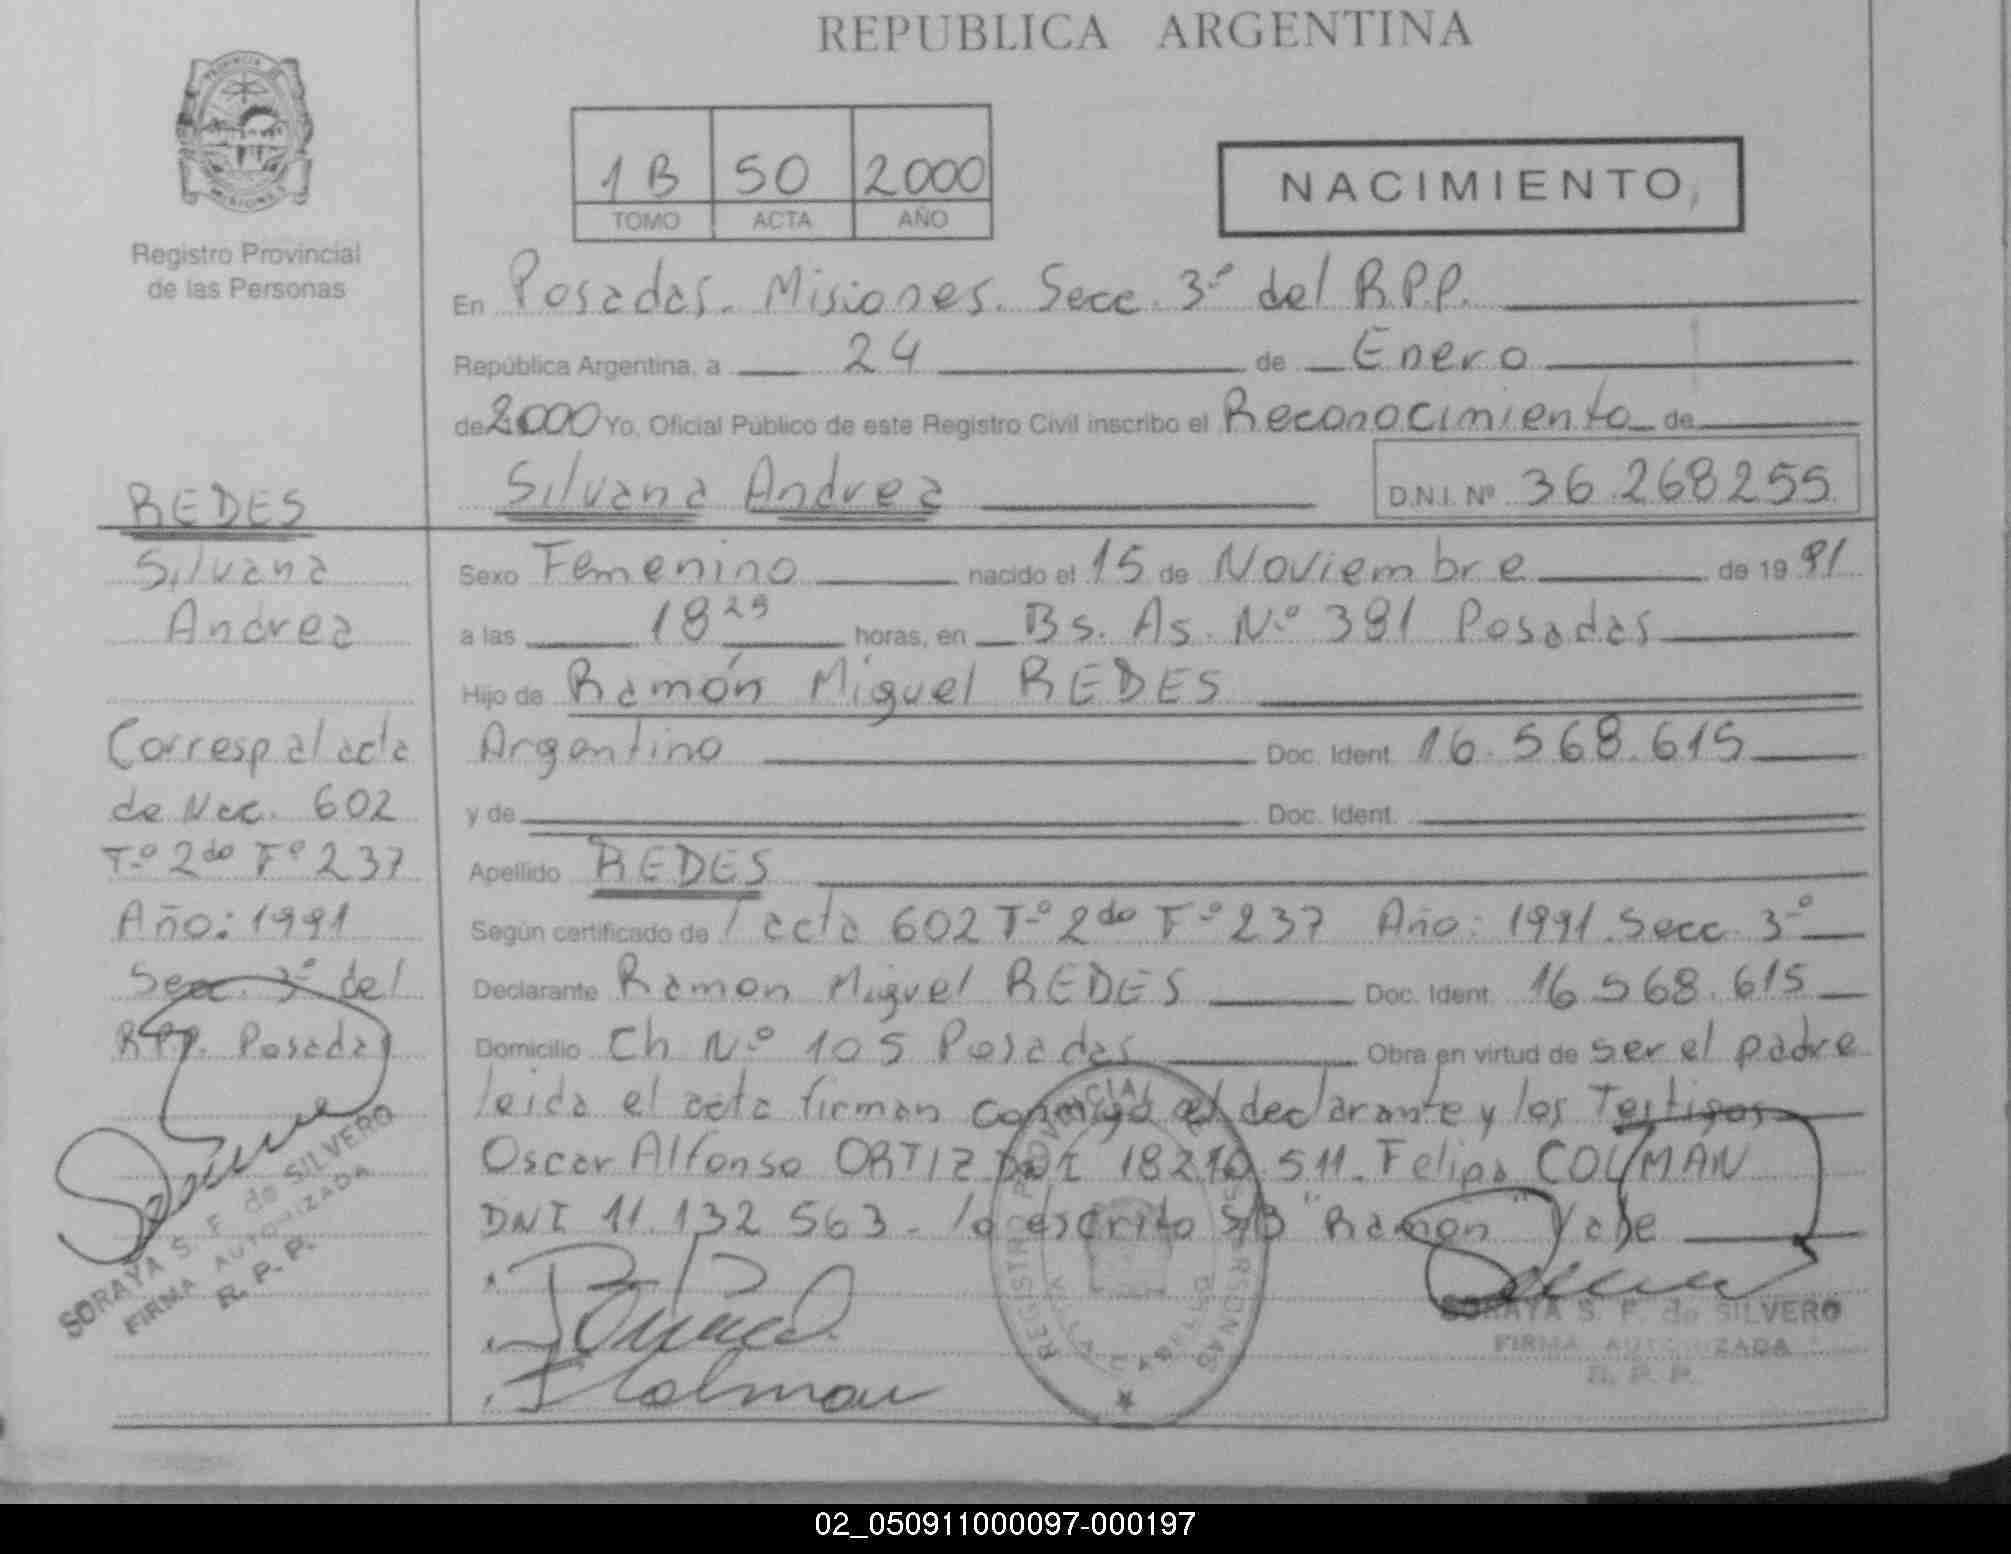 REPUBLICA ARGENTINA
PROVINCIA DE
MISIONES
Registro Provincial
de las Personas
1B 50 2000
TOMO ACTA AÑO
NACIMIENTO
En Posadas. Misiones. Secc. 3ª del R.P.P.
República Argentina, a 24 de Enero
de 2000 Yo, Oficial Público de este Registro Civil inscribo el Reconocimiento de
Silvana Andrea D.N.I. Nº 36.268255
REDES
Silvana
Andrea
Corresp al acta
de Nac. 602
Tº 2do Fº 237
Año: 1991
Secc. 3ª del
RPP. Posadas
SORAYA S. F. de SILVERO
FIRMA AUTORIZADA
R. P. P.
Sexo Femenino nacido el 15 de Noviembre de 1991
a las 18 25 horas, en Bs. As. Nº 381 Posadas
Hijo de Ramón Miguel REDES
Argentino Doc. Ident. 16.568.615
y de Doc. Ident.
Apellido REDES
Según certificado de / acta 602 Tº 2do Fº 237 Año: 1991. Secc. 3ª
Declarante Ramon Miguel REDES Doc. Ident. 16.568.615
Domicilio Ch Nº 105 Posadas Obra en virtud de ser el padre
leida el acta firman conmigo el declarante y los Testigos
Oscar Alfonso ORTIZ DNI 18210.511. Felipa COLMÁN
DNI 11.132 563. lo escrito S/B "Ramon" Vale
REGISTRO PROVINCIAL PERSONAS
SORAYA S. F. de SILVERO
FIRMA AUTORIZADA
R. P. P.
02_050911000097-000197